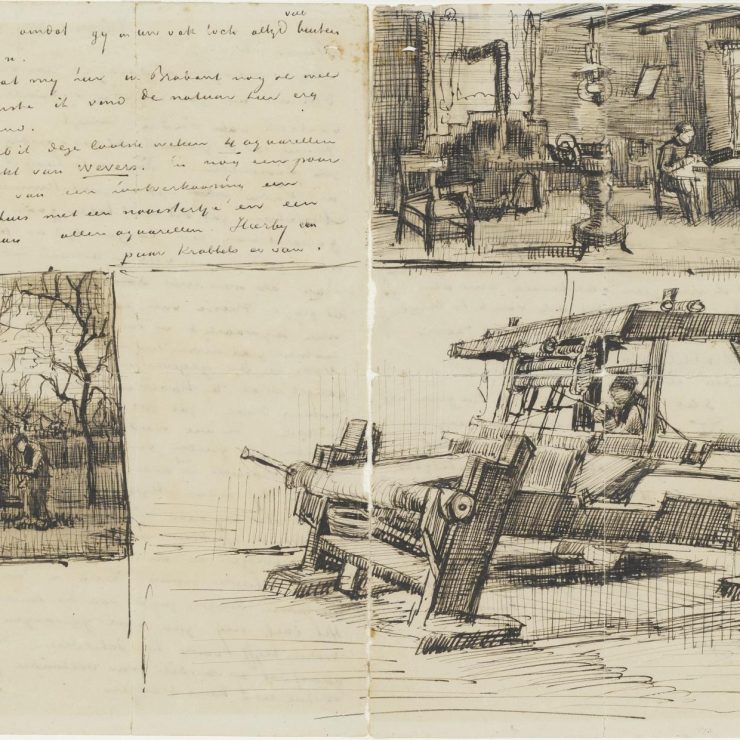 omdat gy in uw vak toch altyd buiten
n.
at my hier in Brabant nog al wel
nste ik vind de natuur hier erg
end.
b ik deze laatste weken 4 aquarellen
akt van wevers. En nog een paar
van een houtverkooping een
huis met een naaistertje en een
allen aquarellen. Hierby een
paar krabbels er van.